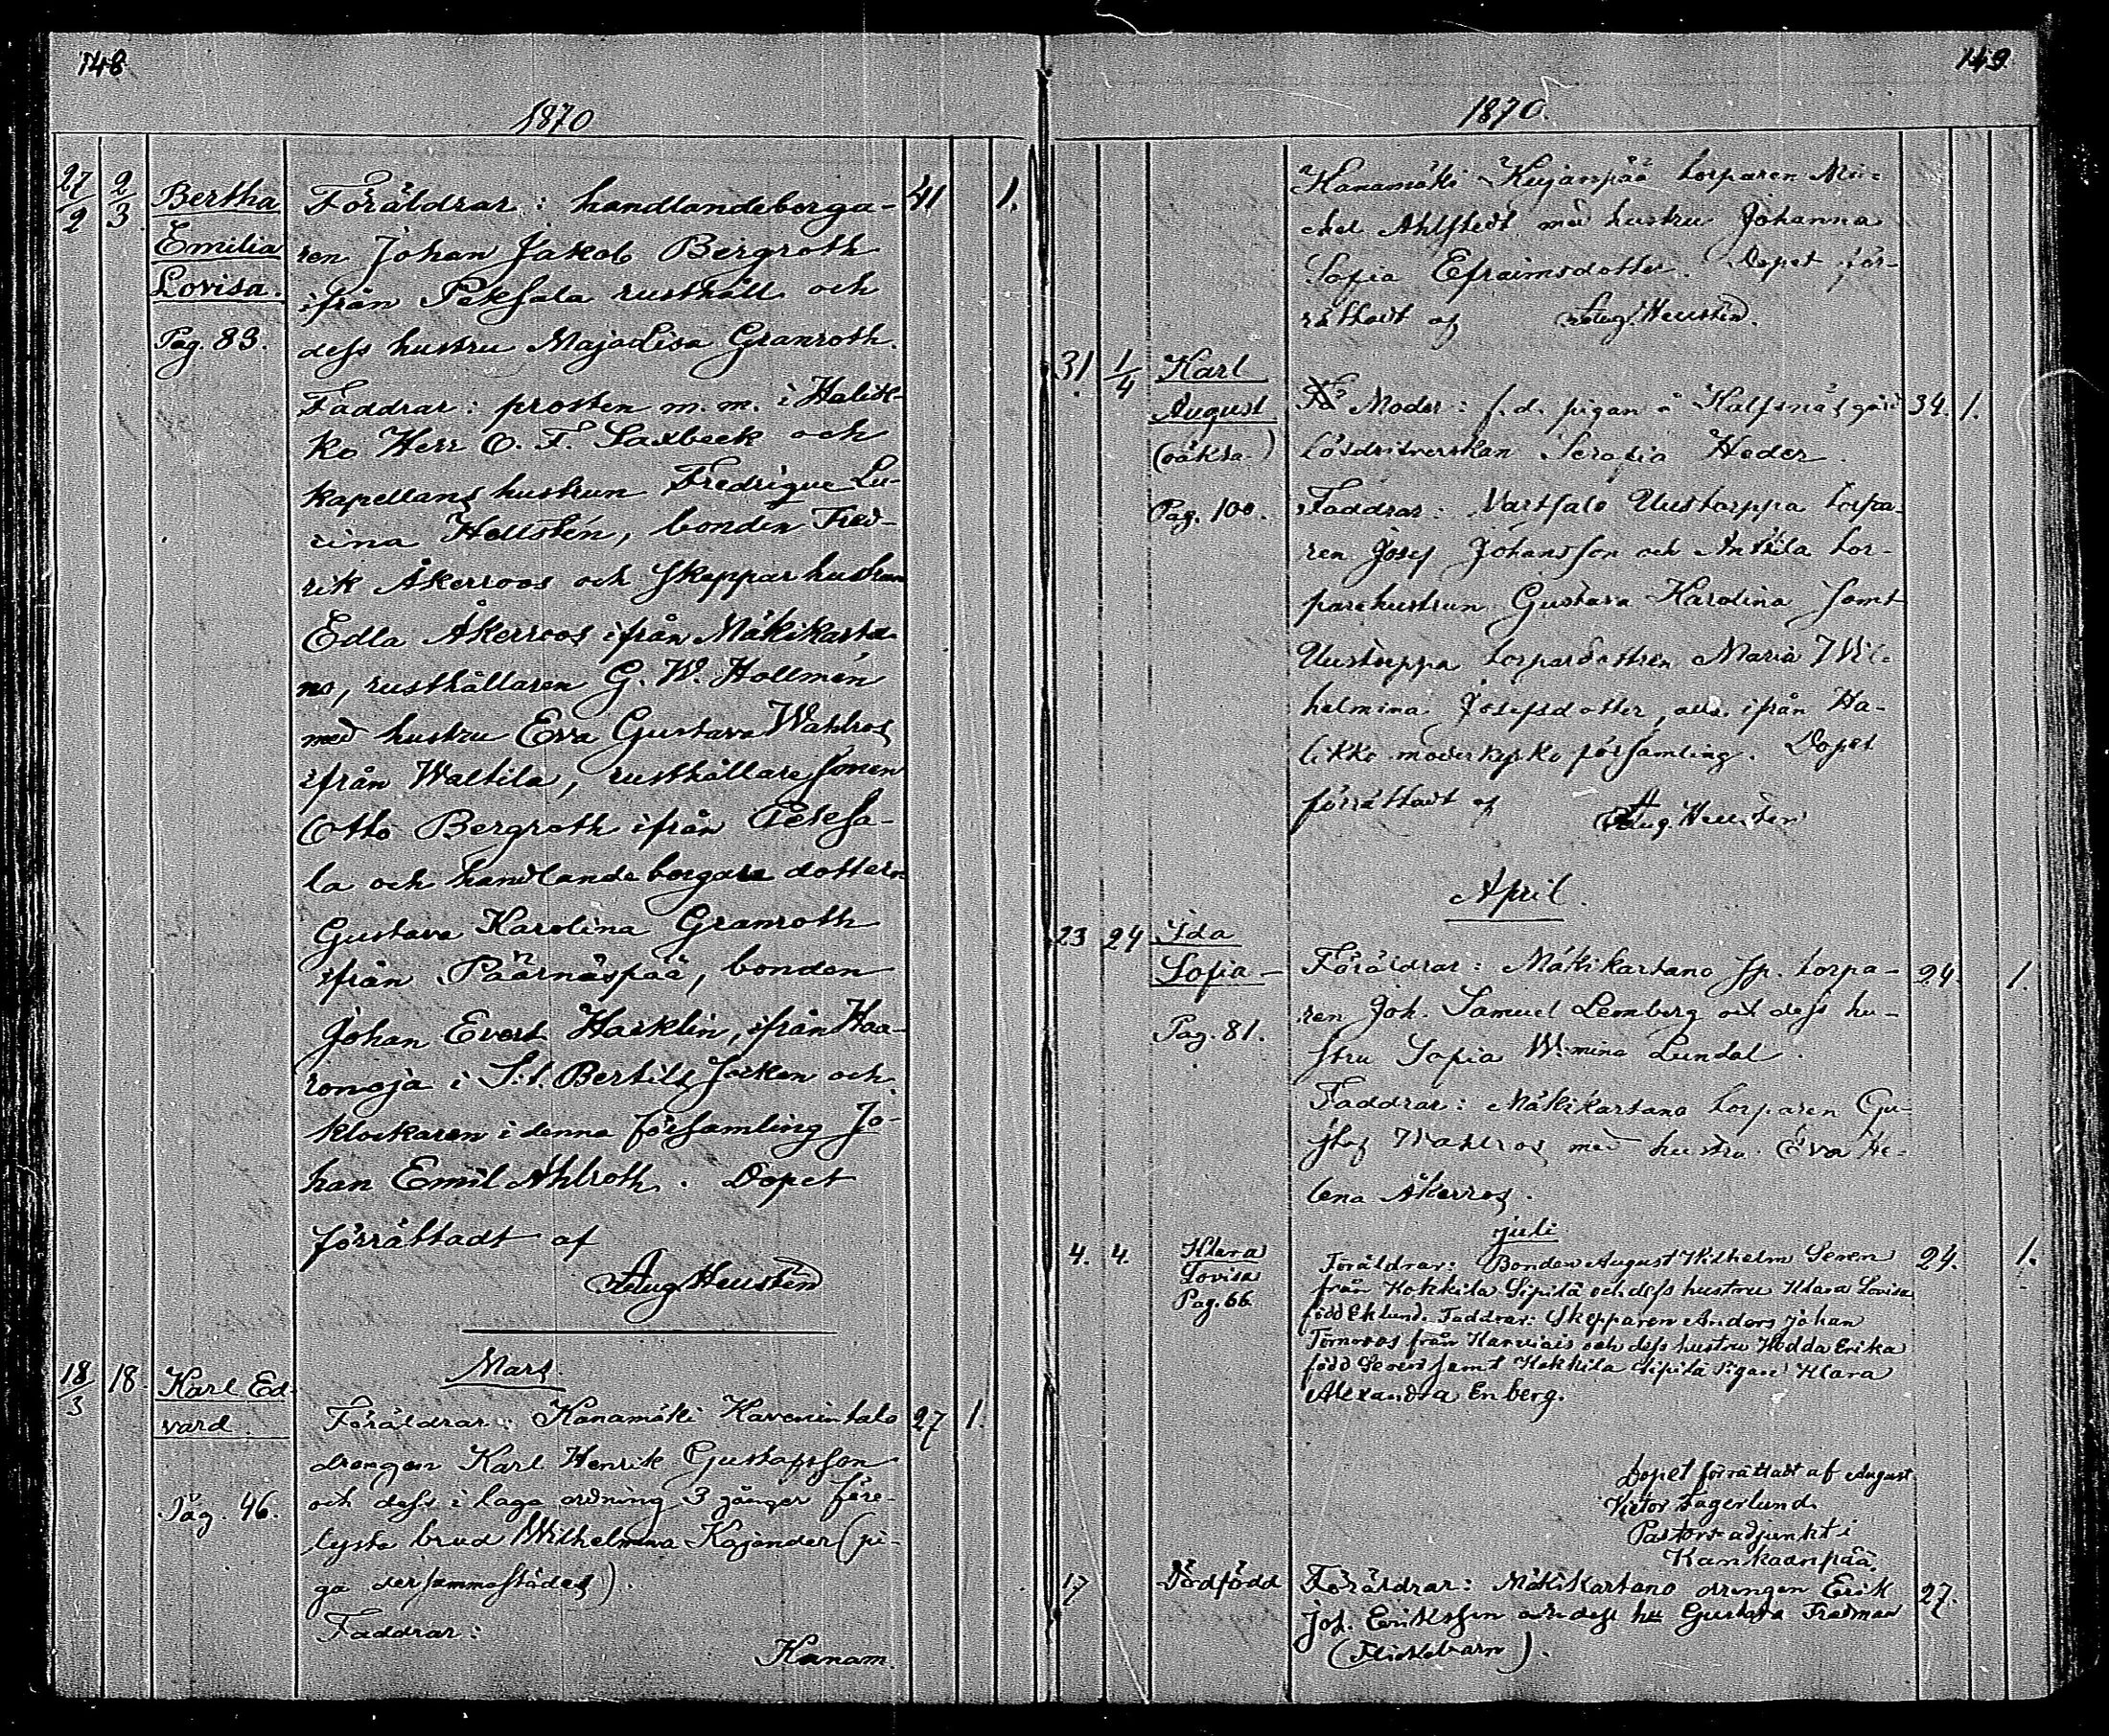 148
1870
27/2 2/3 Bertha Föräldrar: handlandeborga- 41 1.
Emilia ren Johan Jakob Bergroth
Lovisa. ifrån Peksala rusthåll och
Pag. 83. dess hustru Maja Lisa Granroth.
Faddrar: prosten m. m. i Halik-
ko Herr O. F. Saxbeck och
kapellans hustrun Fredrique Lu-
cina Hellstén, bonden Fred-
rik Åkerroos och skeppar hustrun
Edla Åkerroos ifrån Mäkikarta-
no, rusthållaren G. W. Hollmén
med hustru Eva Gustava Wahlros
ifrån Waltila, rusthållare sonen
Otto Bergroth ifrån Peksa-
la och handlande borgare dottern
Gustava Karolina Granroth
ifrån Päärnäspää, bonden
Johan Evert Harklin, ifrån Haa-
ronoja i S:t Bertils socken och
klockaren i denna församling Jo-
han Emil Ahlroth. Dopet
förrättadt af
Aug. Heusten
Mars.
18/3 18. Karl Ed-
vard. Föräldrar: Kanamäki Kavenintalo 27 1.
drengen Karl Henrik Gustafsson
Pag. 46. och dess i laga ordning 3 gånger före-
lyste brud Wilhelmina Kajander (pi-
ga dersammastädes).
Faddrar:
Kanam.
149
1870.
Kanamäki Kujanpää torparen Mi-
chel Ahlstedt med hustru Johanna
Sofia Efraimsdotter. Dopet för-
rättadt af Aug. Heusten.
31. 1/4 Karl
August Moder: f.d. pigan å Kalfsnäs gård 34. 1.
(oäkta.) Lösdrifverskan Serafia Heder.
Pag. 100. Faddrar: Vartsalo Uustorppa torpa-
ren Josef Johansson och Anttila tor-
parehustrun Gustava Karolina samt
Uustorppa torpardottren Maria Wil-
helmina Josefsdotter, alla ifrån Ha-
likko moderkyrko församling. Dopet
förrättadt af Aug. Heusten
April.
23 24 Ida
Sofia- Föräldrar: Mäkikartano sp. torpa- 24. 1.
Pag. 81. ren Joh. Samuel Lemberg och dess hu-
stru Sofia W:mina Lundal.
Faddrar: Mäkikartano torparen Gu-
staf Wahlros med hustru Eva He-
lena Åkerros.
juli
4. 4. Klara Föräldrar: Bonden August Wilhelm Seren 24. 1.
Lovisa från Kokkila Sipilä och dess hustru Klara Lovisa
Pag. 66 född Eklund. Faddrar: Skepparen Anders Johan
Törnroos från och dess hustru Hedda Erika
född Seren samt Kokkila Sipilä Pigan Klara
Alexandra Enberg.
Dopet förrättadt af August
Victor Fagerlund.
Pastors adjunkt i
Kankaanpää
17 Dödfödd Föräldrar: Mäkikartano drengen Erik 27.
Joh. Eriksson och dess hu Gustava Fredman
(Flickebarn).